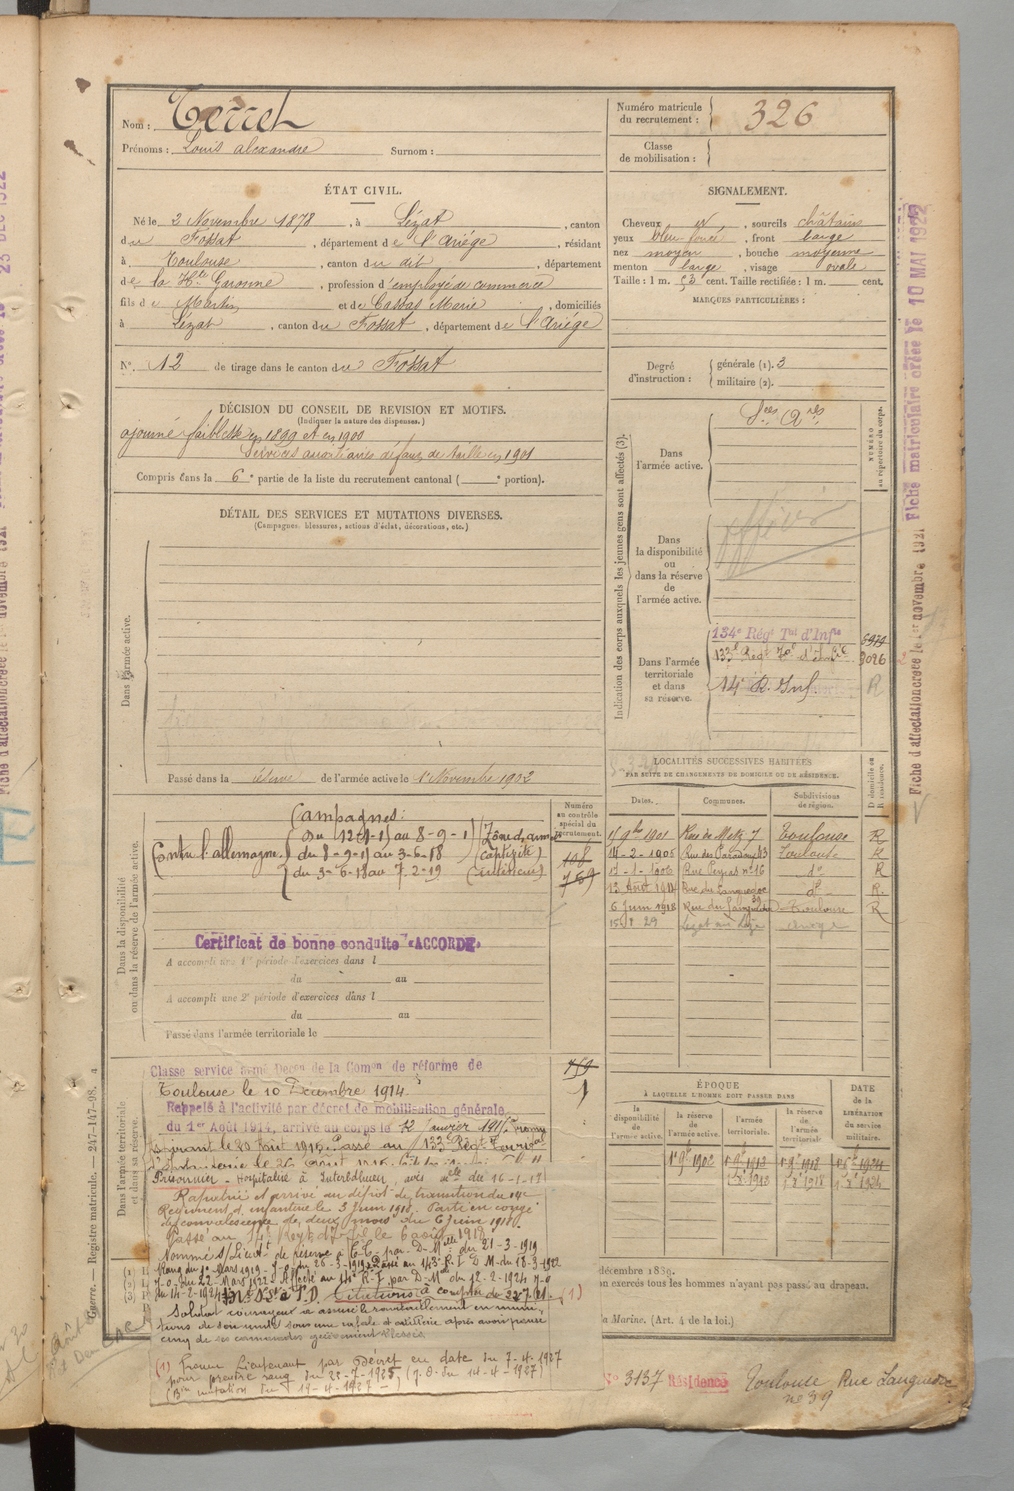 Nom : Terrel
Prénoms : Louis alexandre Surnom :
Numéro matricule du recrutement : 326
Classe de mobilisation :
ÉTAT CIVIL.
Né le 2 Novembre 1878, à Lézat, canton
du Fossat, département de l'Ariège, résidant
à Toulouse, canton du dit, département
de la Hte Garonne, profession d'employé de commerce
fils de Martin et de Cassas Marie, domiciliés
à Lézat, canton du Fossat, département de l'Ariège
N° 12 de tirage dans le canton du Fossat
SIGNALEMENT.
Cheveux et, sourcils châtains
yeux bleu foncé, front large
nez moyen, bouche moyenne
menton large, visage ovale
Taille : 1 m. 53 cent. Taille rectifiée : 1 m. cent.
MARQUES PARTICULIÈRES :
Degré d'instruction : générale (1). 3
militaire (2).
DÉCISION DU CONSEIL DE REVISION ET MOTIFS.
(Indiquer la nature des dispenses.)
ajourné faiblesse en 1899 et en 1900
Services auxiliaires défaut de taille en 1901
Compris dans la 6e partie de la liste du recrutement cantonal ( e portion).
DÉTAIL DES SERVICES ET MUTATIONS DIVERSES.
(Campagnes, blessures, actions d'éclat, décorations, etc.)
Dans l'armée active.
Passé dans la réserve de l'armée active le 1er Novembre 1902
Indication des corps auxquels les jeunes gens sont affectés (3).
NUMÉRO au répertoire du corps.
Dans l'armée active.
Sces Ares
Dans la disponibilité ou dans la réserve de l'armée active.
Dans l'armée territoriale et dans sa réserve.
134e Régt Tal d'Infie
133e Régt Tal d'Infie 3096
14e R. Inf. R
LOCALITÉS SUCCESSIVES HABITÉES
PAR SUITE DE CHANGEMENTS DE DOMICILE OU DE RÉSIDENCE.
Dates. Communes. Subdivisions de région. D domicile ou R résidence.
15 9bre 1901 Rue de Metz 7 Toulouse R
14-2-1905 Rue des Paradoux 13 Toulouse R
17-1-1906 Rue Peyras n° 16 do R
13 Août 1914 Rue du Languedoc do R.
6 Juin 1918 Rue du Languedoc 39 Toulouse R
Dans la disponibilité ou dans la réserve de l'armée active.
Numéro au contrôle spécial du recrutement.
Campagnes :
Contre l'allemagne du 12-1-15 au 8-9-15 (Zône d. armées)
du 8-9-15 au 3-6-18 (captivité)
du 3-6-18 au 7-2-19 (intérieur)
108
759
Certificat de bonne conduite "ACCORDÉ"
A accompli une 1re période d'exercices dans l
du au
A accompli une 2e période d'exercices dans l
du au
Passé dans l'armée territoriale le
Dans l'armée territoriale et dans sa réserve.
759
1
Classé service armé Décon de la Comon de réforme de
Toulouse le 10 Décembre 1914.
Rappelé à l'activité par décret de mobilisation générale
du 1er Août 1914, arrivé au corps le 12 Janvier 1915.
Passé au 133e Régt Territal
Prisonnier - Hospitalisé à Interlaken, avis du 16-1-17
Rapatrié et arrivé au dépôt de transition du 14e
Régiment d'infanterie le 3 Juin 1918. Parti en congé
de convalescence de deux mois du 6 Juin 1918.
Passé au 14e Régt d'Infie le 6 août 1918.
Nommé S/Lieut de réserve à T.T. par D. Mlle du 21-3-1919
du 22 Mars 1922. Affecté au 14e R.I. par D.M. du 12-2-1924 J.O
du 14-2-1924. Citations
Soldat courageux a assuré le ravitaillement en muni-
tions de son unité sous une rafale d'artillerie après avoir pansé
cinq de ses camarades grièvement blessés.
(1) Promu Lieutenant par Décret en date du 7-4-1927
pour prendre rang du 22-7-1925 (J.O. du 14-4-1927)
(Bin mutation du 19-4-1927 -)
ÉPOQUE
À LAQUELLE L'HOMME DOIT PASSER DANS
la disponibilité de l'armée active. la réserve de l'armée active. l'armée territoriale. la réserve de l'armée territoriale.
DATE de la LIBÉRATION du service militaire.
1er 9bre 1902
décembre 1839.
on exercés tous les hommes n'ayant pas passé au drapeau.
a Marine. (Art. 4 de la loi.)
N° 3137 Résidence Toulouse Rue Languedoc
n° 39
Guerre. — Registre matricule. — 247-147-98.
Fiche d'affectation créée le 1er novembre 1921 Fiche matriculaire créée le 10 MAI 1922